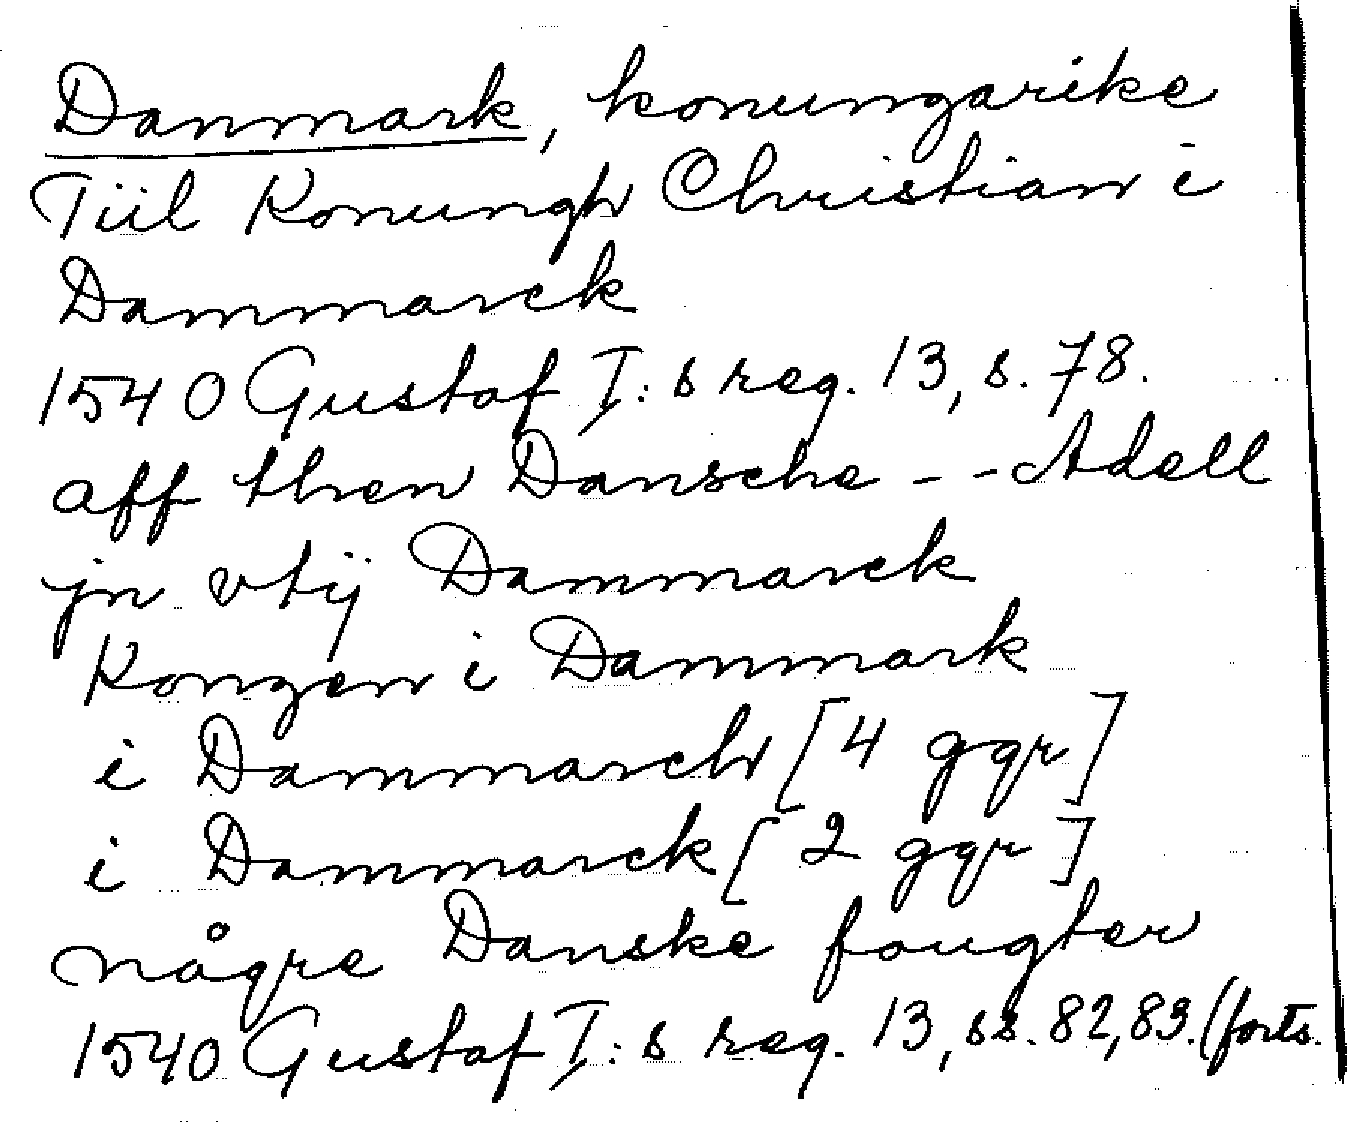 Danmark, konungarike
Tiil Konungh Christian i
Dammarck
1540 Gustaf I:s reg. 13, s. 78.
aff then Dansche - - Adell
jn vtij Dammarck
Kongen i Dammark
i Dammarch [4 ggr]
i Dammarck [2 ggr]
någre Danske fougter
1540 Gustaf I:s reg. 13, ss. 82, 83. (forts.